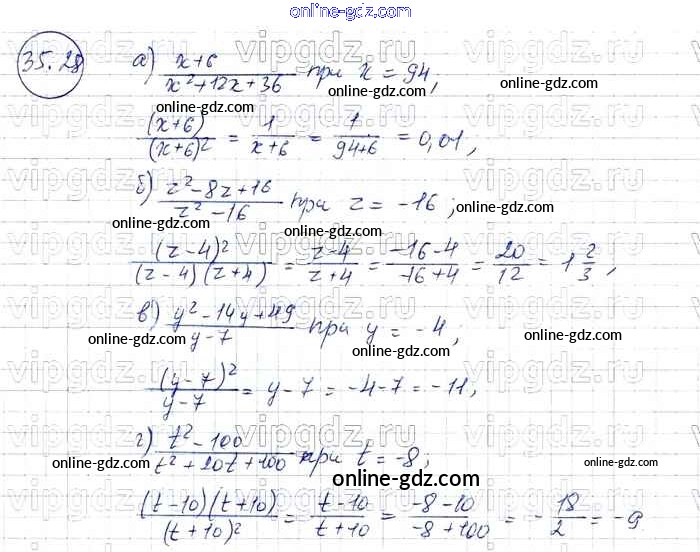 online-gdz.com
35.28 а) (x+6)/(x²+12x+36) при x = 94,
online-gdz.com online-gdz.com
(x+6)/(x+6)² = 1/(x+6) = 1/(94+6) = 0,01,
online-gdz.com
б) (z²-8z+16)/(z²-16) при z = -16;
online-gdz.com online-gdz.com
(z-4)²/((z-4)(z+4)) = (z-4)/(z+4) = (-16-4)/(-16+4) = 20/12 = 1 2/3,
online-gdz.com
в) (y²-14y+49)/(y-7) при y = -4;
online-gdz.com online-gdz.com
(y-7)²/(y-7) = y-7 = -4-7 = -11,
online-gdz.com
г) (t²-100)/(t²+20t+100) при t = -8;
online-gdz.com online-gdz.com
online-gdz.com
(t-10)(t+10)/(t+10)² = (t-10)/(t+10) = (-8-10)/(-8+100) = -18/2 = -9
online-gdz.com
vipgdz.ru